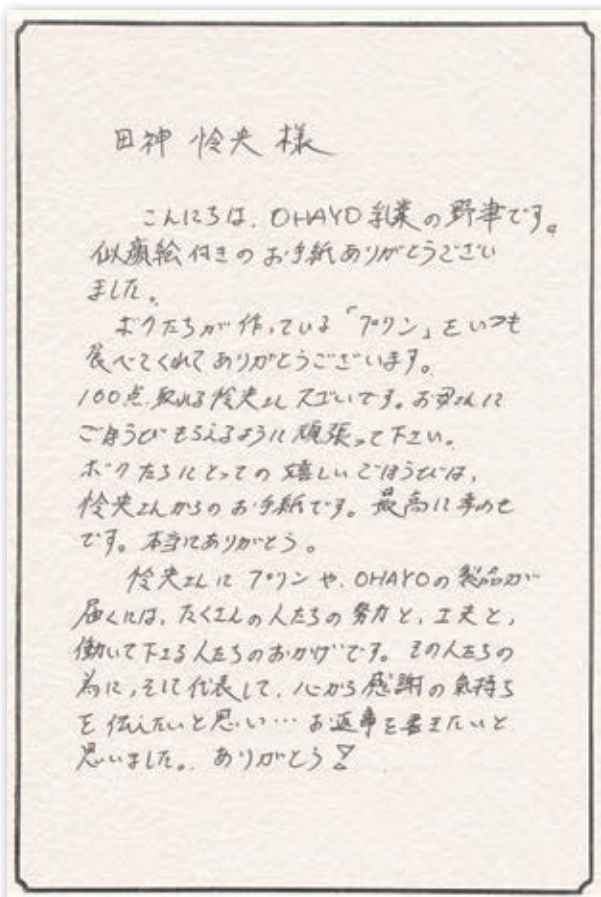 田神 怜央 様
こんにちは、OHAYO乳業の野津です。
似顔絵付きのお手紙ありがとうござい
ました。
ボクたちが作っている「プリン」をいつも
食べてくれてありがとうございます。
100点取れる怜央さんスゴいです。お母さんに
ごほうびもらえるように頑張って下さい。
ボクたちにとっての嬉しいごほうびは、
怜央さんからのお手紙です。最高に幸わせ
です。本当にありがとう。
怜央さんにプリンや、OHAYOの製品が
届くには、たくさんの人たちの努力と、工夫と、
働いて下さる人たちのおかげです。その人たちの
為に、そして代表して、心から感謝の気持ち
を伝えたいと思い…お返事を書きたいと
思いました。ありがとう!